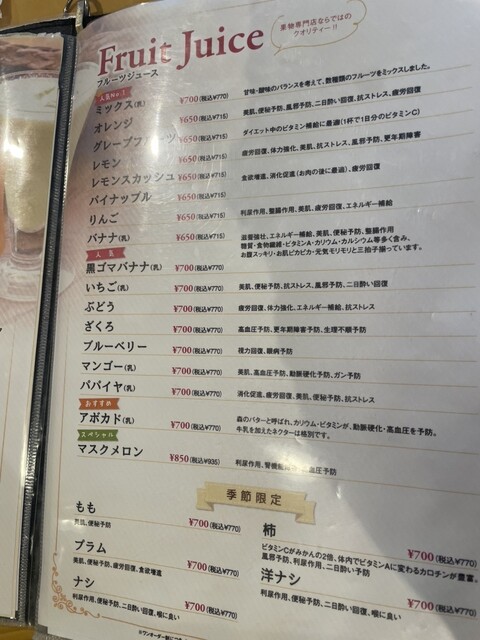 Fruit Juice
フルーツジュース
果物専門店ならではの
クオリティー!!
人気No.1
ミックス(乳) ¥700(税込¥770) 甘味・酸味のバランスを考えて、数種類のフルーツをミックスしました。
オレンジ ¥650(税込¥715) 美肌、便秘予防、風邪予防、二日酔い回復、抗ストレス、疲労回復
グレープフルーツ ¥650(税込¥715) ダイエット中のビタミン補給に最適(1杯で1日分のビタミンC)
レモン ¥650(税込¥715) 疲労回復、体力強化、美肌、抗ストレス、風邪予防、更年期障害
レモンスカッシュ ¥650(税込¥715)
パイナップル ¥650(税込¥715) 食欲増進、消化促進(お肉の後に最適)、疲労回復
りんご ¥650(税込¥715) 利尿作用、整腸作用、美肌、疲労回復、エネルギー補給
バナナ(乳) ¥650(税込¥715) 滋養強壮、エネルギー補給、美肌、便秘予防、整腸作用
糖質・食物繊維・ビタミンA・カリウム・カルシウム等多く含み、
お腹スッキリ・お肌ピカピカ・元気モリモリと三拍子揃っています。
人気
黒ゴマバナナ(乳) ¥700(税込¥770)
いちご(乳) ¥700(税込¥770) 美肌、便秘予防、抗ストレス、風邪予防、二日酔い回復
ぶどう ¥700(税込¥770) 疲労回復、体力強化、エネルギー補給、抗ストレス
ざくろ ¥700(税込¥770) 高血圧予防、更年期障害予防、生理不順予防
ブルーベリー ¥700(税込¥770) 視力回復、眼病予防
マンゴー(乳) ¥700(税込¥770) 美肌、高血圧予防、動脈硬化予防、ガン予防
パパイヤ(乳) ¥700(税込¥770) 消化促進、疲労回復、美肌、便秘予防、抗ストレス
おすすめ
アボカド(乳) ¥700(税込¥770) 森のバターと呼ばれ、カリウム・ビタミンが、動脈硬化・高血圧を予防。
牛乳を加えたネクターは格別です。
スペシャル
マスクメロン ¥850(税込¥935) 利尿作用、腎機能 高血圧予防
季節限定
もも ¥700(税込¥770)
美肌、便秘予防
プラム ¥700(税込¥770)
美肌、便秘予防、疲労回復、食欲増進
ナシ ¥700(税込¥770)
利尿作用、便秘予防、二日酔い回復、喉に良い
柿 ¥700(税込¥770)
ビタミンCがみかんの2倍、体内でビタミンAに変わるカロチンが豊富。
風邪予防、利尿作用、二日酔い予防
洋ナシ ¥700(税込¥770)
利尿作用、便秘予防、二日酔い回復、喉に良い
※ワンオーダー制